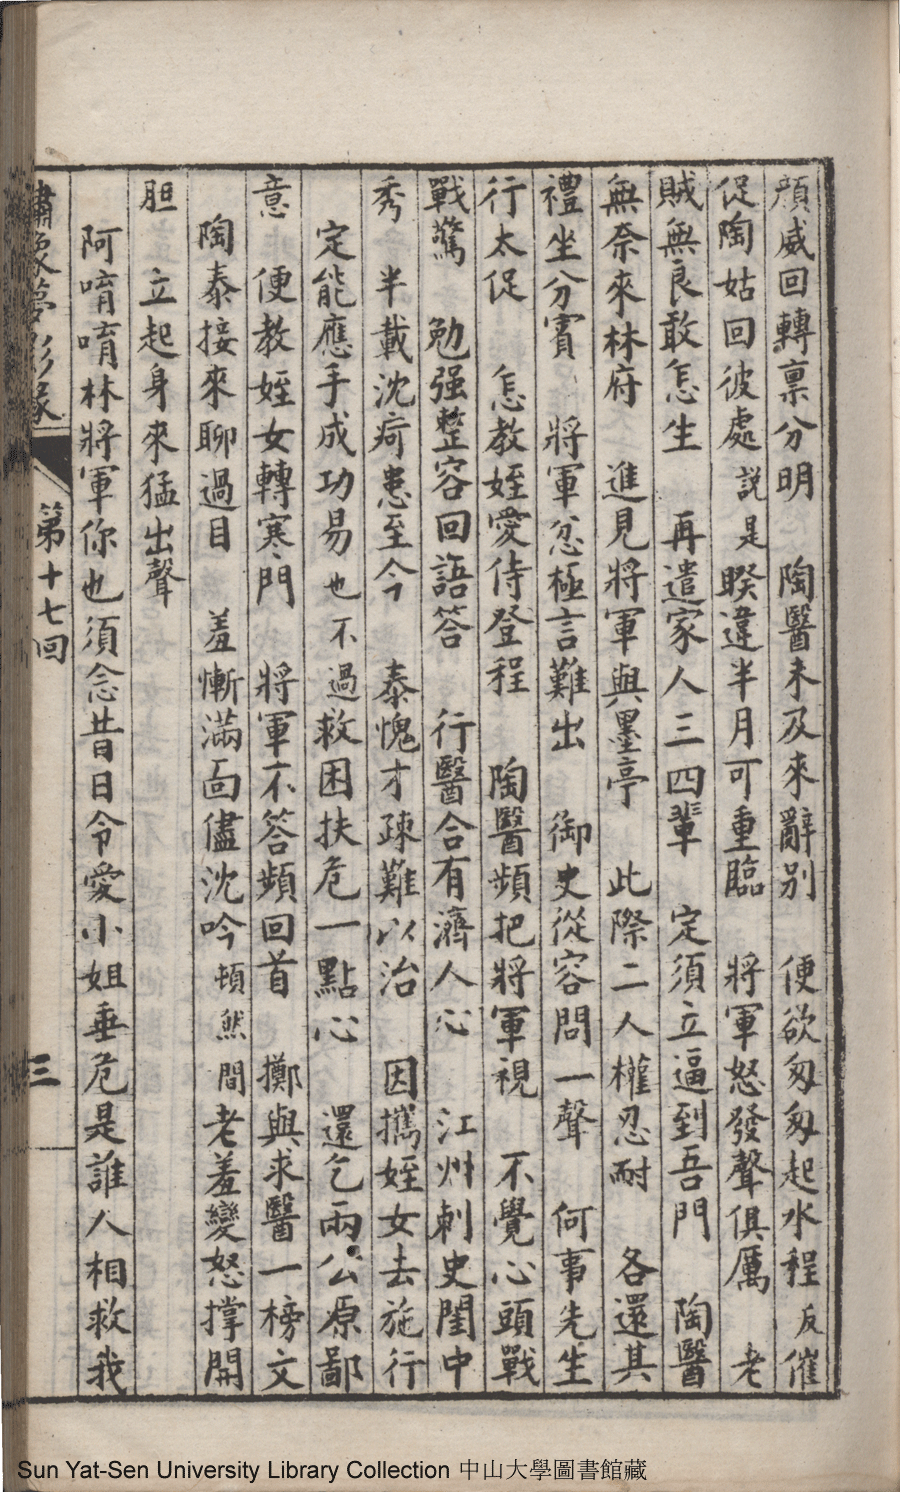 顏威回轉禀分明　陶醫未及來辭別　便欲匆匆起水程反催
促陶姑回彼處説是睽違半月可重臨　將軍怒發聲俱厲　老
賊無良敢怎生　再遣家人三四輩　定須立逼到吾門　陶醫
無奈來林府　進見將軍與墨亭　此際二人權忍耐　各還其
禮坐分賓　將軍忿極言難出　御史從容問一聲　何事先生
行太促　怎教姪愛侍登程　陶醫頻把將軍視　不覺心頭戰
戰驚　勉强整容回語答　行醫合有濟人心　江州刺史閨中
秀　半載沈疴患至今　泰愧才疎難以治　因攜姪女去施行
定能應手成功易也不過救困扶危一點心　還乞兩公原鄙
意　便教姪女轉寒門　將軍不答頻回首　擲與求醫一榜文
陶泰接來聊過目　羞慚滿面儘沈吟頓然間老羞變怒撑開
胆　立起身來猛出聲
阿唷唷林將軍你也須念昔日令愛小姐垂危是誰人相救我
繡像夢影緣　第十七回　三
Sun Yat-Sen University Library Collection 中山大學圖書館藏